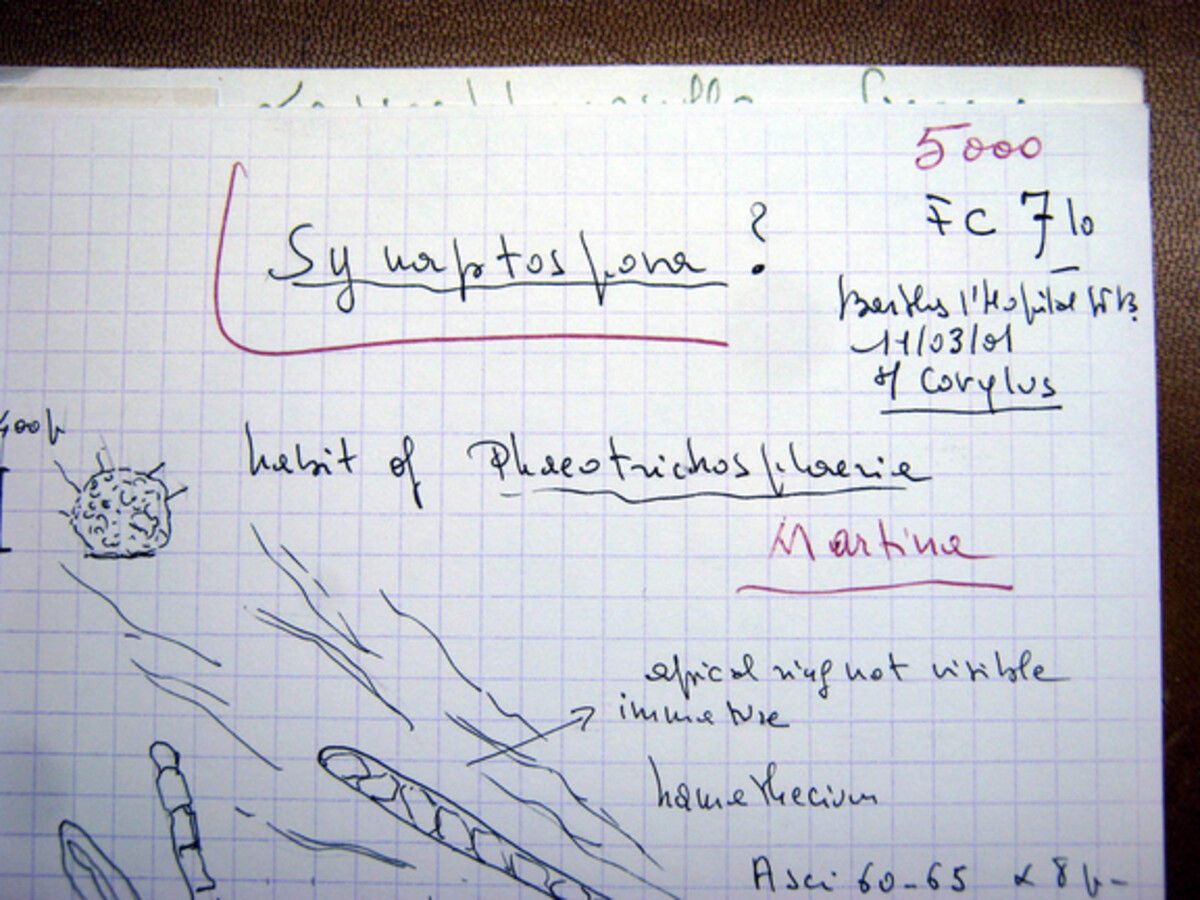 5000
Synaptospora ?
FC 710
l'Hopital
11/03/01
of Corylus
400µ
habit of Phaeotrichosphaeria
Martine
apical ring not visible
immature
hamathecium
Asci 60-65 x 8 µ-